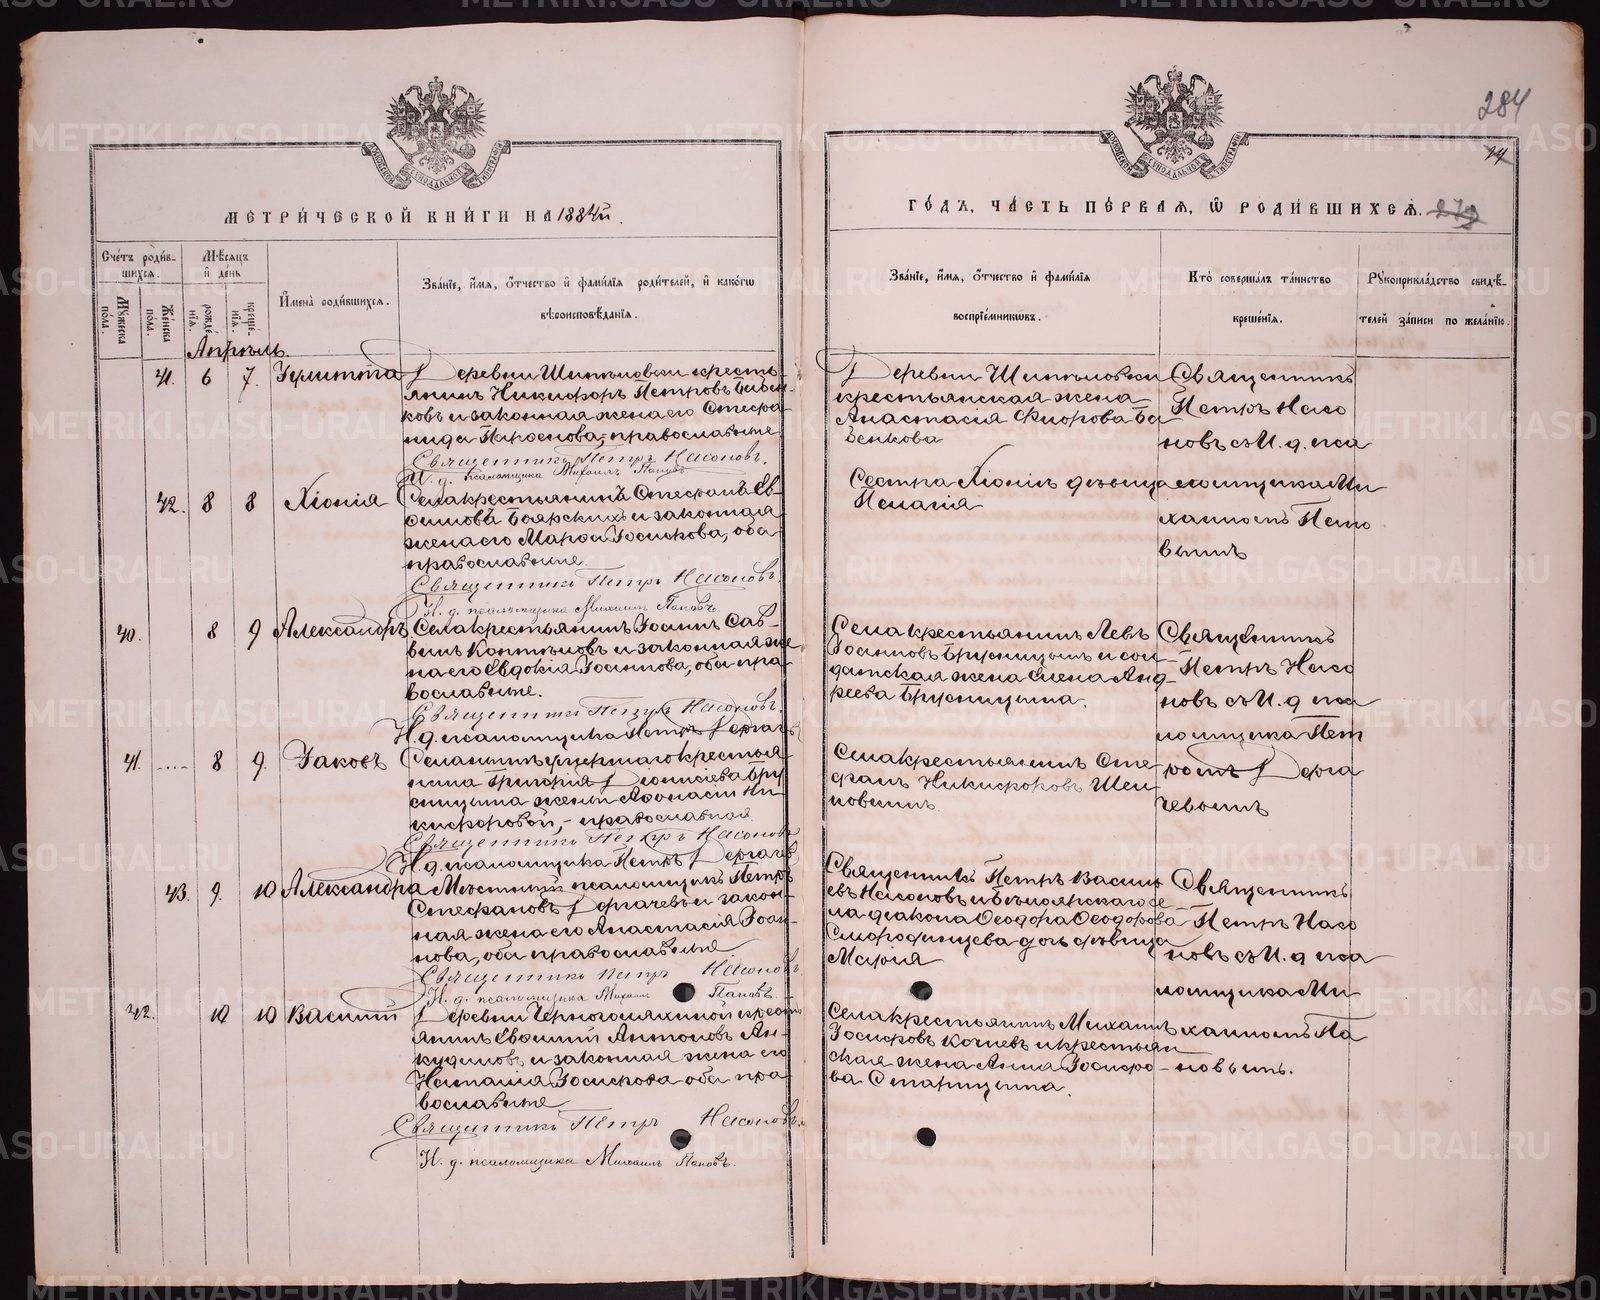 284
14
МЕТРИЧЕСКОЙ КНИГИ НА 1884й
ГОДЪ, ЧАСТЬ ПЕРВАЯ, Ѿ РОДИВШИХСЯ. 279
Счетъ родив-
шихся.
Мѣсяцъ
и день
Мужеска
пола.
Женска
пола.
рожде-
нія.
креще-
нія.
Имена родившихся.
Званіе, имя, отчество и фамилія родителей, и какогѡ
вѣроисповѣданія.
Званіе, имя, отчество и фамилія
воспріемникѡвъ.
Кто совершалъ таинство
крещенія.
Рукоприкладство свидѣ-
телей записи по желанію.
Апрѣль.
41. 6 7. Іулитта
Деревни Шипѣловки кресть-
янинъ Никифоръ Петровъ
ковъ и законная жена его Стефа-
нида православные
Священникъ Петръ Насоновъ.
И. д. псаломщика Михаилъ Паповъ
Деревни Шипѣловки
крестьянская жена
Анастасія Ба
бенкова
Священникъ
Петръ Насо
новъ съ И. д. пса
42. 8 8 Хіонія
Села крестьянинъ Стефанъ Ев-
симовъ Боярскихъ и законная
жена его Марѳа Іосифова, оба
православные
Священникъ Петръ Насоновъ.
И. д. псаломщика Михаилъ Паповъ
Сестра Хіоніи дѣвица
Пелагія
ломщика Ми
хаиломъ Папо
вымъ
40. 8 9 Александръ
Села крестьянинъ Іоаннъ Сав-
винъ Коптѣловъ и законная же
на его Евдокія Іоаннова, оба пра
вославные.
Священникъ Петръ Насоновъ.
И. д. псаломщика Петръ Дергачевъ
Села крестьянинъ Левъ
Іоанновъ Брусницынъ и сол-
датская жена Елена Анд-
реева Брусницына.
Священникъ
Петръ Насо
новъ съ И. д. пса
ломщика Пет
41. .... 8 9. Іаковъ
Села умершаго крестья
нина Григорія Діонисіева Бру
сницына жены Аѳанасіи Ни-
кифоровой, - православной.
Священникъ Петръ Насоновъ
И. д. псаломщика Петръ Дергачевъ
Села крестьянинъ Сте-
фанъ Никифоровъ
ромъ Дерга
чевымъ
43. 9. 10 Александра
Мѣстный псаломщикъ Петръ
Стефановъ Дергачевъ и закон-
ная жена его Анастасія Іоан-
нова, оба православные
Священникъ Петръ Насоновъ.
И. д. псаломщика Михаилъ Паповъ.
Священникъ Петръ Василь
евъ Насоновъ и Бѣлоярскаго се-
ла діакона Ѳеодора Ѳеодорова
Смородинцева дочь дѣвица
Марія
Священникъ
Петръ Насо
новъ съ И. д. пса
ломщика Ми
42. 10 10 Василій
Деревни крестъ
янинъ Евѳимій Антоновъ Ан-
кудиновъ и законная жена его
Наталія Іосифова оба пра
вославные
Священникъ Петръ Насоновъ.
И. д. псаломщика Михаилъ Паповъ.
Села крестьянинъ Михаилъ
Іосифовъ Кочневъ и крестьян
ская жена Анна Іосифо-
ва Старицына.
хаиломъ Па
новымъ.